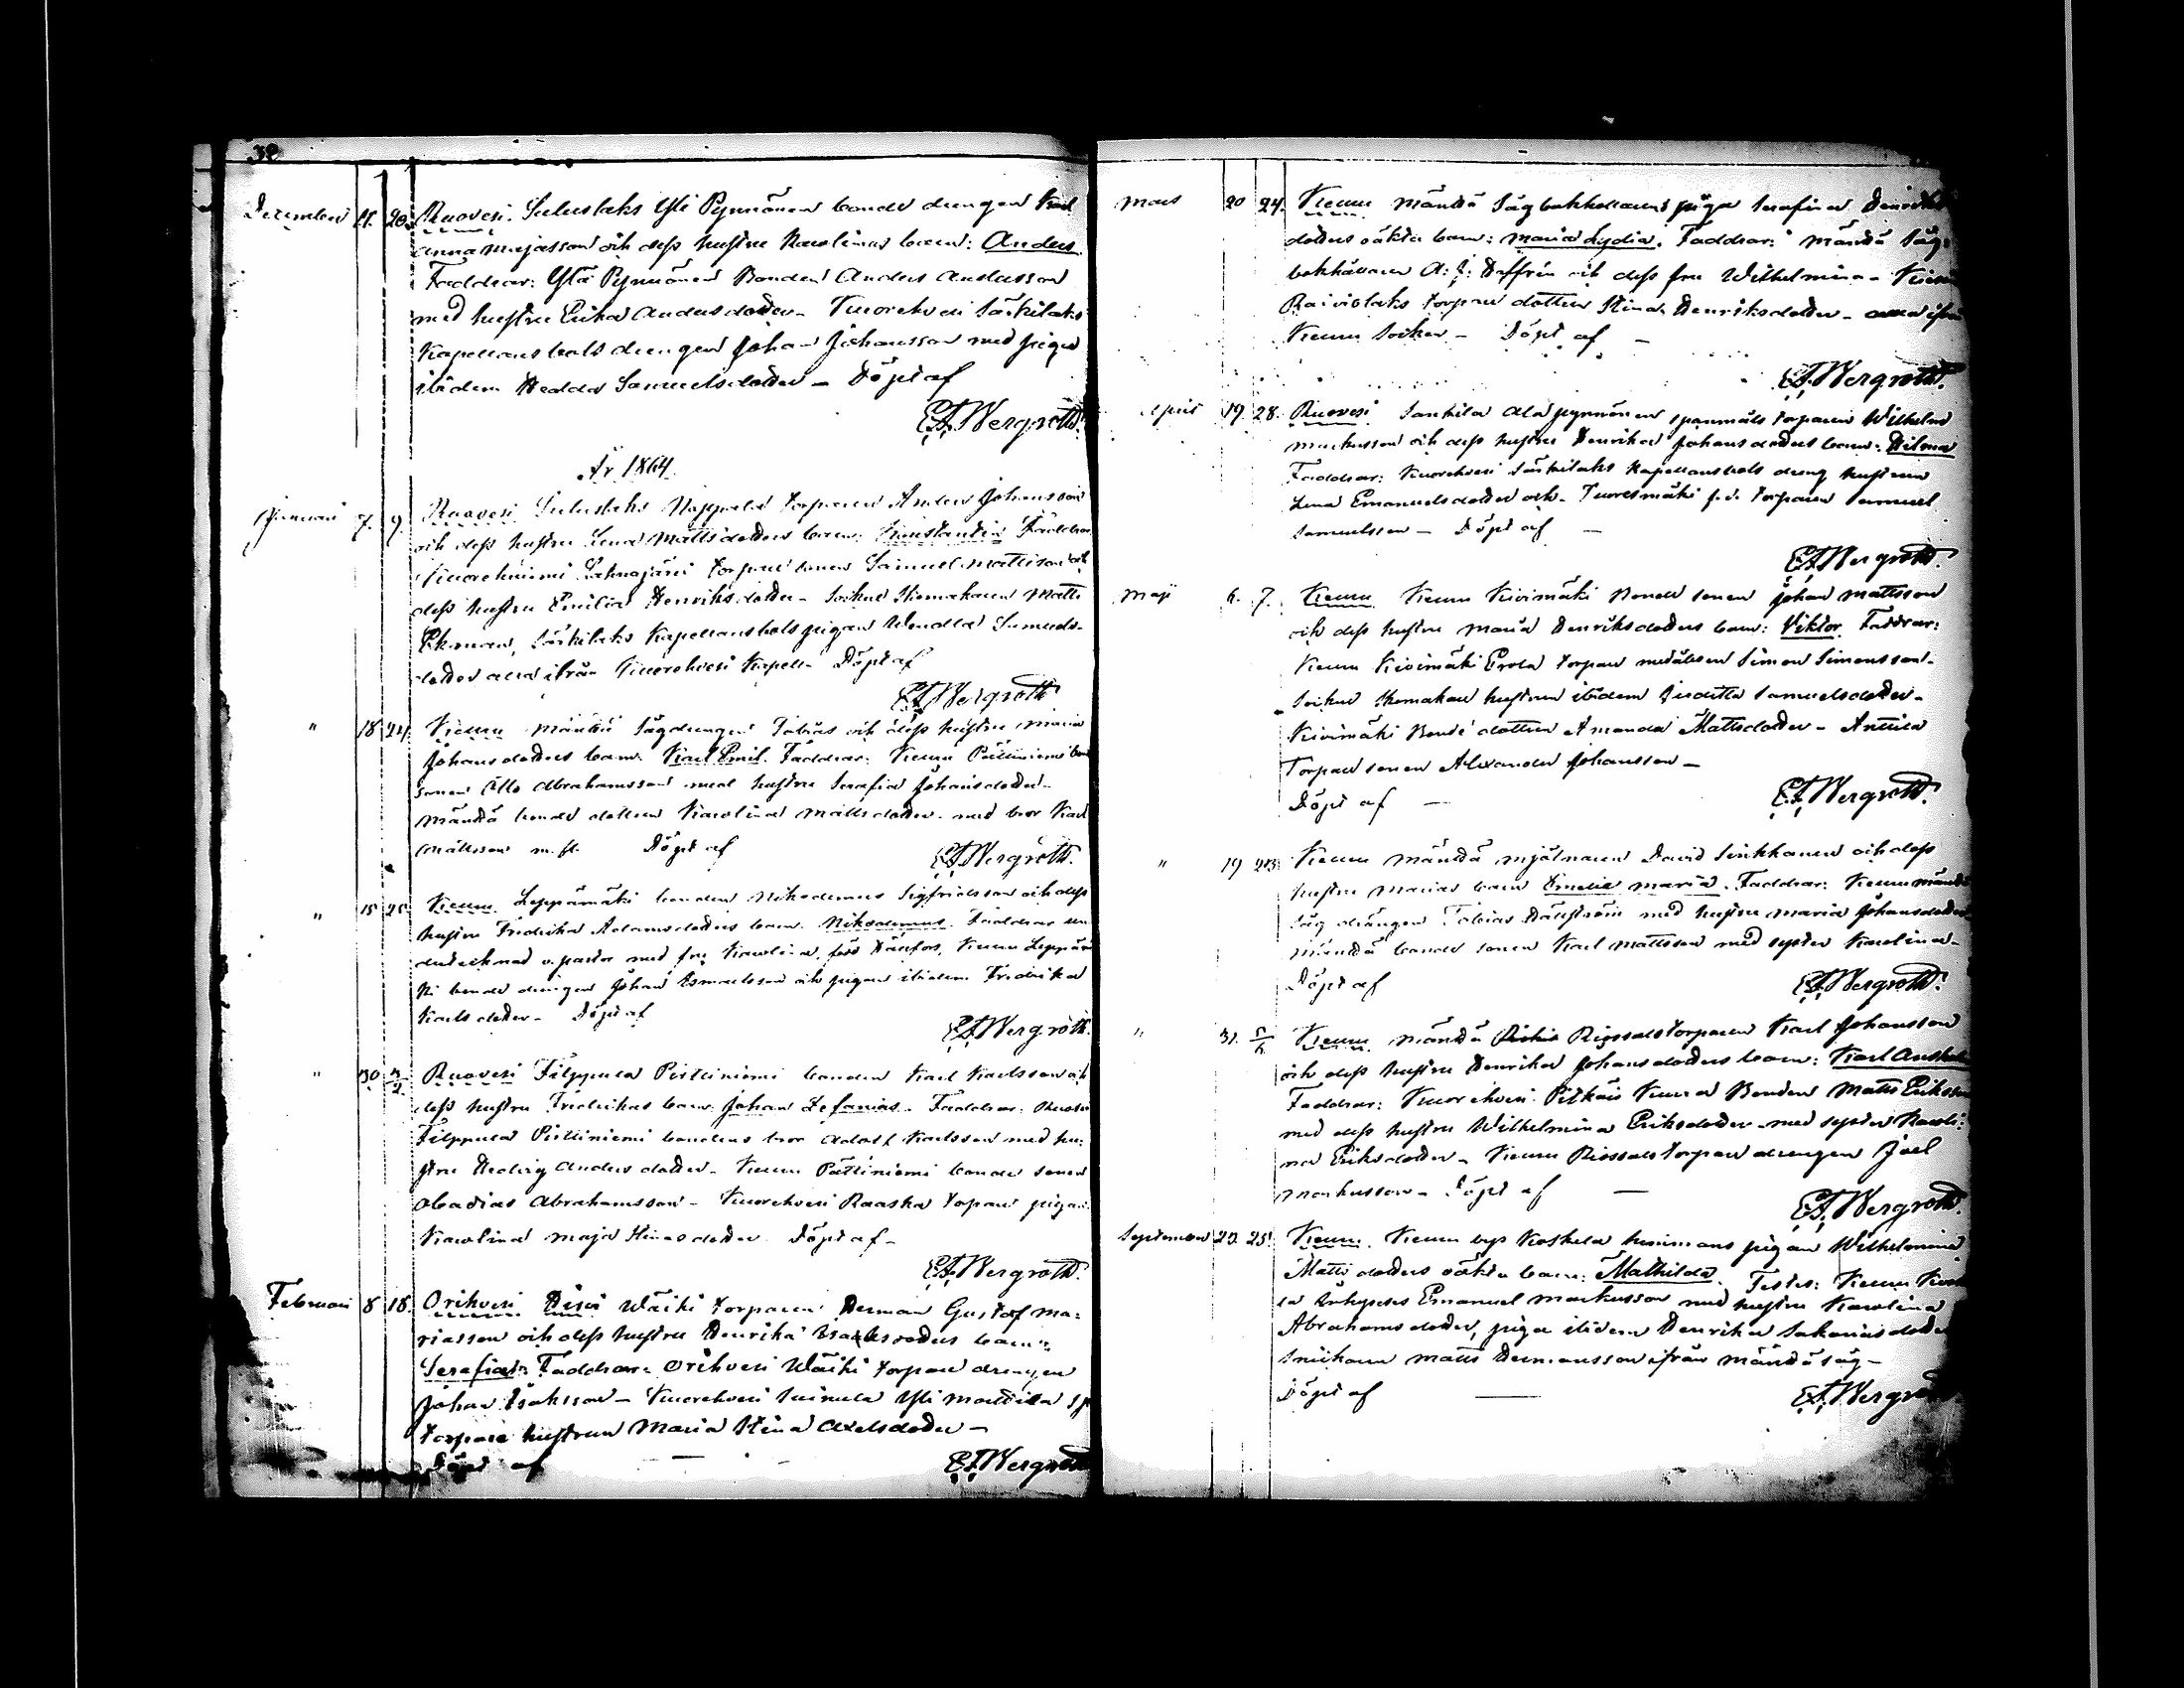 30
December 11. 20. Ruovesi. Suluslaks Yli Pynnönen bonde drengen Karl
Annamajasson och dess hustru Karolinas barn: Anders
Faddrar: Ylä Pynnönen Bonden Anders Andersson
med hustru Erika Andersdotter – Kuorehvesi Särkilaks
Kapellansbols drengen Johan Johansson med pigan
ibidem Hedda Samuelsdotter – Döpt af
E.F. Wergroth.
År 1864.
Januari 7. 9. Ruovesi. Suluslaks torparen Anders Johansson
och dess hustru Lena Mattsdotters barn: Konstantin Faddrar
Lahnajärvi torpare sonen Samuel Mattsson och
dess hustru Emilia Henriksdotter – Sockne Skomakaren Matts
Ekman, Särkilaks Kapellansbols pigan Wendla Samuels-
dotter alla ifrån Kuorehvesi Kapell – Döpt af
E.F. Wergroth
" 18. 24. Keuru Mänttä Sågdrengen Tobias och dess hustru Maria
Johansdotters barn: Karl Emil. Faddrar: Keuru Pättiniemi bonde
sonen Otto Abrahamsson med hustru Serafia Johansdotter –
Mänttä bonde dottren Karolina Mattsdotter med bror Karl
Mattsson m. fl. Döpt af
E.F. Wergroth.
" 15 25. Keuru. Leppämäki bonden Nikodemus Sigfridsson och dess
hustru Fredrika Adamsdotters barn: Nikodemus. Faddrar un-
dertecknad v. pastor med fru Karolina, född Dånfors, Keuru Leppämä
ki bonde drengen Johan Ismaelsson och pigan ibidem Fredrika
Karlsdotter – Döpt af
E.F. Wergroth.
" 30 3/2. Ruovesi Filppula Pittiniemi bonden Karl Karlsson och
dess hustru Fredrikas barn: Johan Zefanias. Faddrar: Ruovesi
Filppula Pittiniemi bondens bror Adolf Karlsson med hu-
stru Hedvig Andersdotter – Keuru Pättiniemi bonde sonen
Abadias Abrahamsson – Kuorehvesi Raaska torpare pigan
Karolina Maja Stinasdotter Döpt af –
E.F. Wergroth.
Februari 8 18. Orihvesi Hirsi Wäihi torparen Herman Gustaf Ma-
riasson och dess hustru Henrika Isaksdotters barn:
Serafia: Faddrar: Orihvesi Wäihi torpare drengen
Johan Isaksson – Kuorehvesi Suinula Yli Mattila
torpare hustrun Maria Stina Axelsdotter –
Döpt af
E.F. Wergroth
Mars 20 24. Keuru Mänttä Sågbokhållarens piga Serafina Henriks
dotters oäkta barn: Maria Lydia. Faddrar: Mänttä Såg-
bokhållaren A. J. Häffrén och dess fru Wilhelmina – Keuru
Raiviolaks torpare dottren Stina Henriksdotter – alla ifrån
Keuru Socken – Döpt af –
E.F. Wergroth.
April 19. 28. Ruovesi Sankila Ala Pynnönen spannmåls torparen Wilhelm
Markusson och dess hustru Henrika Johansdotters barn: Hilma
Faddrar: Kuorehvesi Särkilaks Kapellansbols dreng hustrun
Lena Emanuelsdotter och Tuoresmäki f.d. torparen Samuel
Samuelsson – Döpt af –
E.F. Wergroth.
Maji 6. 7. Keuru Keuru Kivimäki Bonde sonen Johan Mattsson
och dess hustru Maria Henriksdotters barn: Viktor Faddrar:
Keuru Kivimäki Erola torpare Simon Simonsson –
Sockne Skomakare hustrun ibidem Juditta Samuelsdotter –
Kivimäki Bonde dottren Amanda Mattsdotter – Anttila
Torpare sonen Alexander Johansson –
Döpt af –
E.F. Wergroth.
" 19 23. Keuru Mänttä mjölnaren David Sinkkonen och dess
hustru Marias barn Emelie Maria. Faddrar: Keuru Mänttä
Såg drängen Tobias med hustru Maria Johansdotter
Mänttä bonde sonen Karl Mattsson med syster Karolina –
Döpt af
E.F. Wergroth.
" 31. 5/6 Keuru. Mänttä Riossals torparen Karl Johansson
och dess hustru Henrika Johansdotters barn: Karl Anshelm
Faddrar: Kuorehvesi Bonden Matts Eriksson
med dess hustru Wilhelmina Eriksdotter med syster Karoli-
na Eriksdotter – Keuru Riossals torpare drengen Joel
Markusson – Döpt af –
E.F. Wergroth.
September 23. 25. Keuru. Keuru by Koskela pigan Wilhelmina
Mattsdotters oäkta barn: Mathilda. Testes: Keuru Koske
la Emanuel Markusson med hustru Karolina
Abrahamsdotter, piga ibidem Henrika Sakariasdotter
Snickaren Matts Hermansson ifrån Mänttä såg –
Döpt af –
E.F. Wergroth